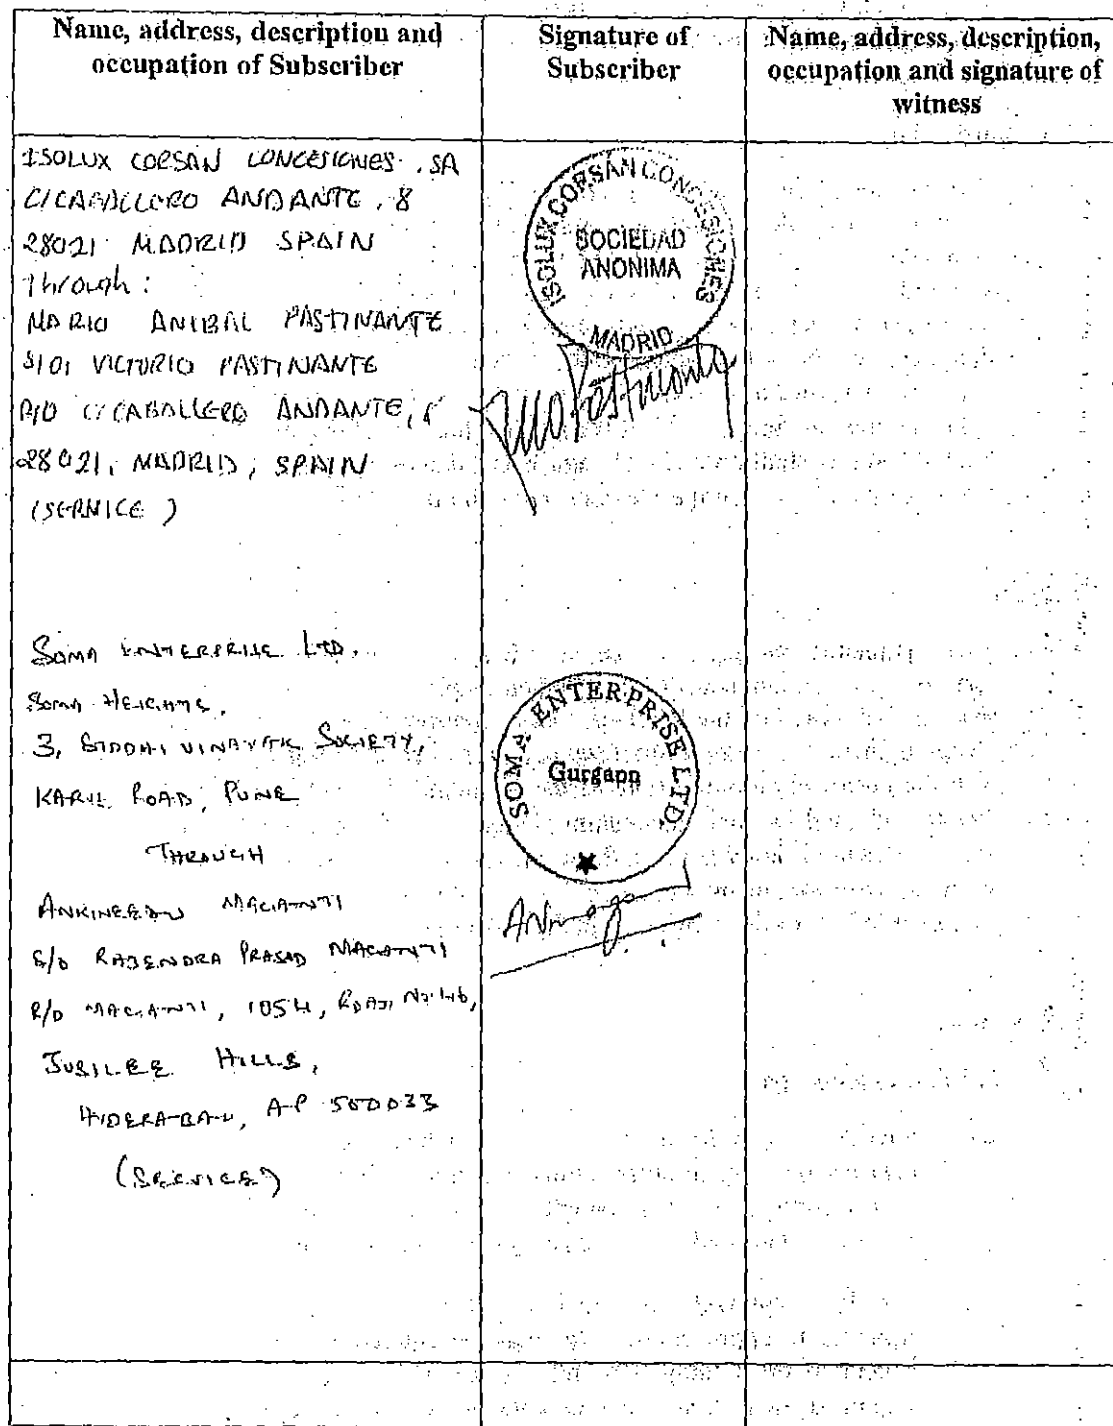 Name, address, description and
occupation of Subscriber
Signature of
Subscriber
Name, address, description,
occupation and signature of
witness
ISOLUX CORSAN CONCESIONES . SA
C/CABALLERO ANDANTE , 8
28021 MADRID SPAIN
Through :
MARIO ANIBAL PASTINANTE
S/O: VICTORIO PASTINANTE
R/O C/CABALLERO ANDANTE,
28021, MADRID, SPAIN
(SERVICE)
ISOLUX CORSAN CONCESIONES
SOCIEDAD
ANONIMA
MADRID
SOMA ENTERPRISE LTD.
SOMA HEIGHTS,
3, SIDDHI VINAYAK SOCIETY,
KARVE ROAD, PUNE
THROUGH
ANKINEEDU MAGANTI
S/O RAJENDRA PRASAD MAGANTI
R/O MAGANTI, 1054, ROAD No 46,
JUBILEE HILLS,
HYDERABAD, A-P 500033
(SERVICE)
SOMA ENTERPRISE LTD.
Gurgaon